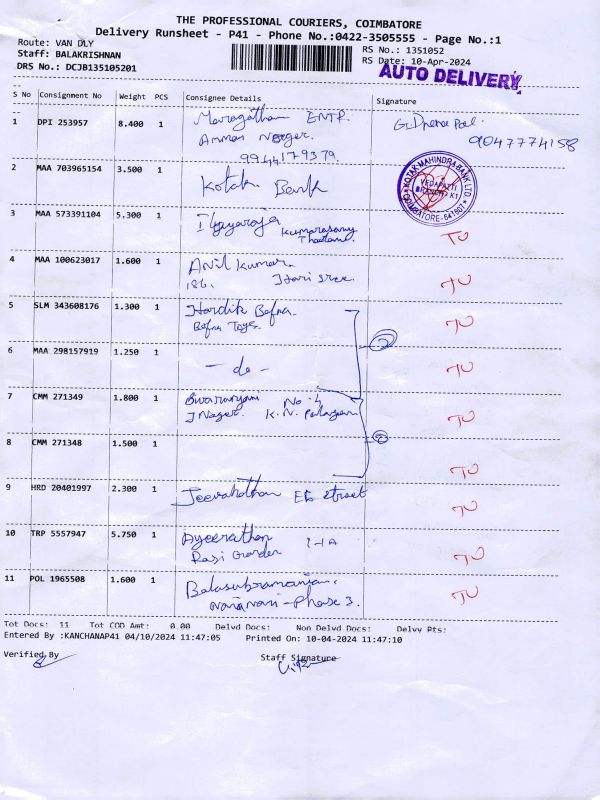 THE PROFESSIONAL COURIERS, COIMBATORE
Delivery Runsheet - P41 - Phone No.:0422-3505555 - Page No.:1
Route: VAN DLY
RS No.: 1351052
Staff: BALAKRISHNAN
RS Date: 10-Apr-2024
DRS No.: DCJB135105201
AUTO DELIVERY
S No Consignment No Weight PCS Consignee Details Signature
1 DPI 253957 8.400 1 Maragatham ENTR.
Annai Nager.
9944179379.
9047774158
2 MAA 703965154 3.500 1 Kotak Bank
KOTAK MAHINDRA BANK LTD.
VEDAPATTI
BRANCH K1
COIMBATORE-641007
3 MAA 573391104 5.300 1 Ilayaraja Kumarasamy
TU
4 MAA 100623017 1.600 1 Anil Kumar.
186. Hari sree
TU
5 SLM 343608176 1.300 1 Hardik Bafna.
Bafna Toys.
TU
6 MAA 298157919 1.250 1 - do -
TU
7 CMM 271349 1.800 1 No-4
J Nager. K.N. Palayam
TU
8 CMM 271348 1.500 1
TU
9 HRD 20401997 2.300 1 Jeevanathan EB street
TU
10 TRP 5557947 5.750 1 1-1A
Rasi Garden
TU
11 POL 1965508 1.600 1 Balasubramaniam.
Phase 3.
TU
Tot Docs: 11 Tot COD Amt: 0.00 Delvd Docs: Non Delvd Docs: Delvy Pts:
Entered By :KANCHANAP41 04/10/2024 11:47:05 Printed On: 10-04-2024 11:47:10
Verified By Staff Signature